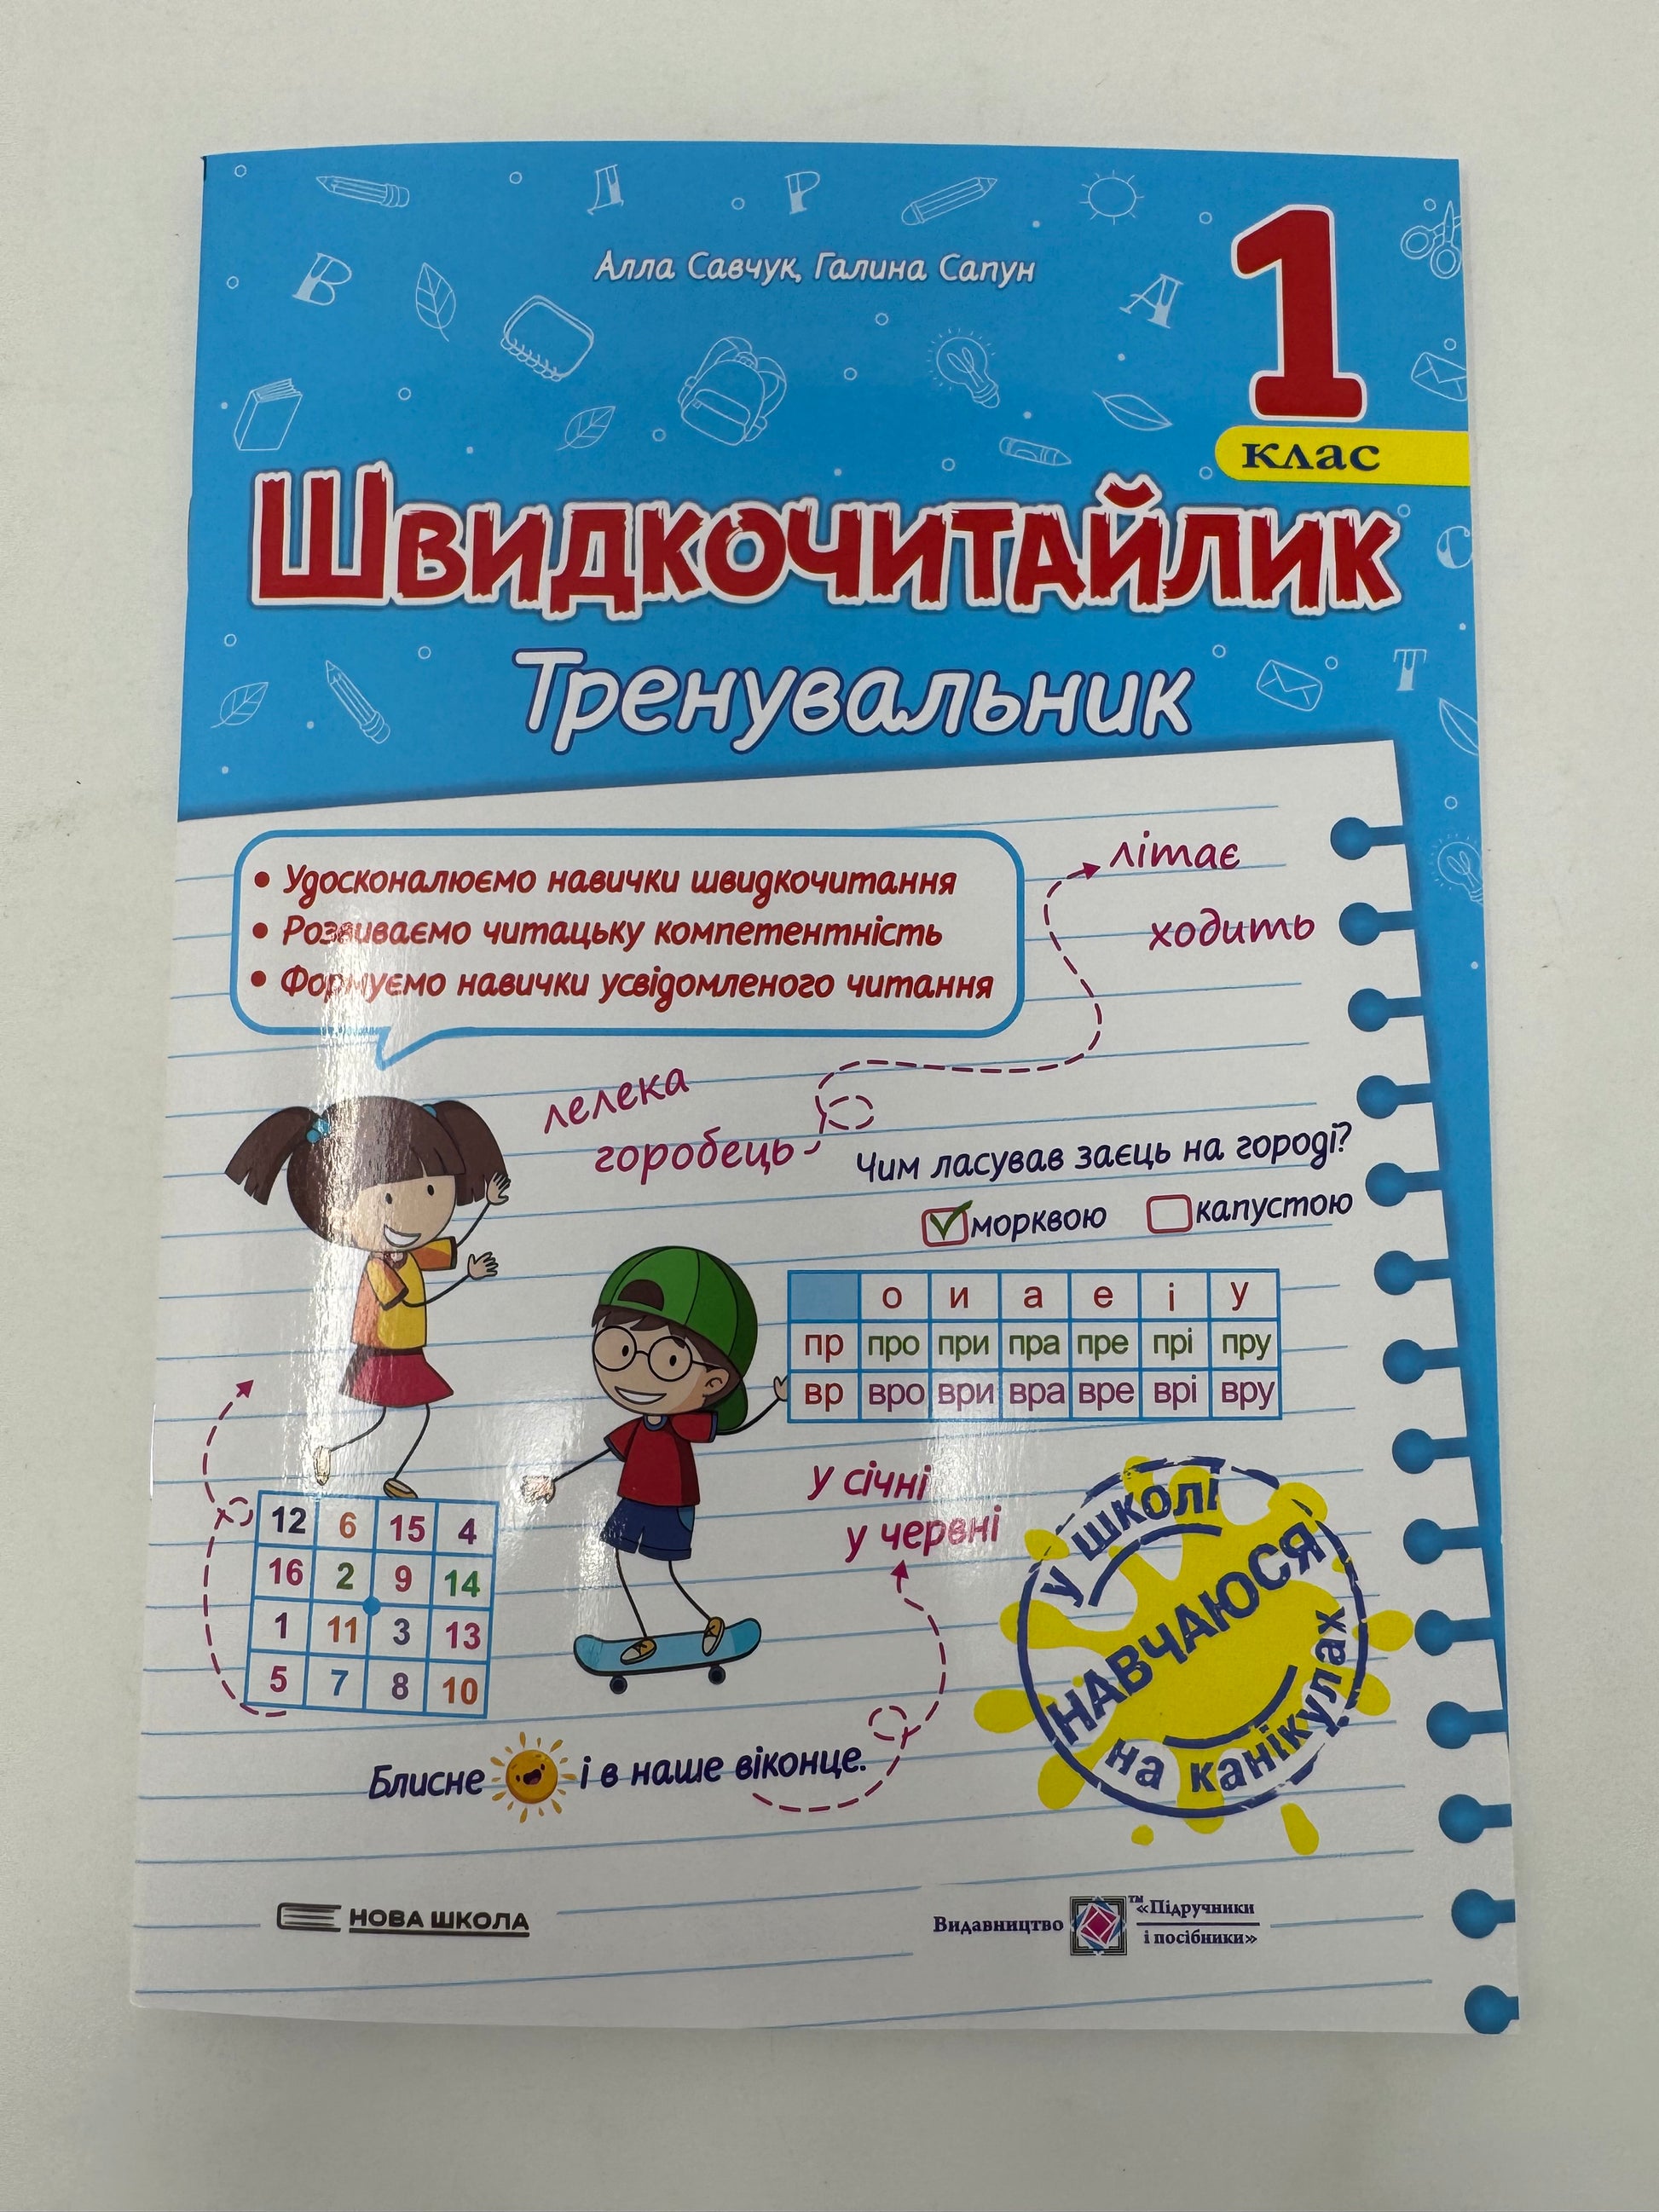 Алла Савчук, Галина Сапун
1
клас
Швидкочитайлик
Тренувальник
• Удосконалюємо навички швидкочитання
• Розвиваємо читацьку компетентність
• Формуємо навички усвідомленого читання
літає
ходить
лелека
горобець
Чим ласував заєць на городі?
морквою капустою
о и а е і у
пр про при пра пре прі пру
вр вро ври вра вре врі вру
у січні
у червні
12 6 15 4
16 2 9 14
1 11 3 13
5 7 8 10
У ШКОЛІ
НАВЧАЮСЯ
на канікулах
Блисне і в наше віконце.
НОВА ШКОЛА
Видавництво
TM «Підручники
і посібники»
В Д Р А С Т